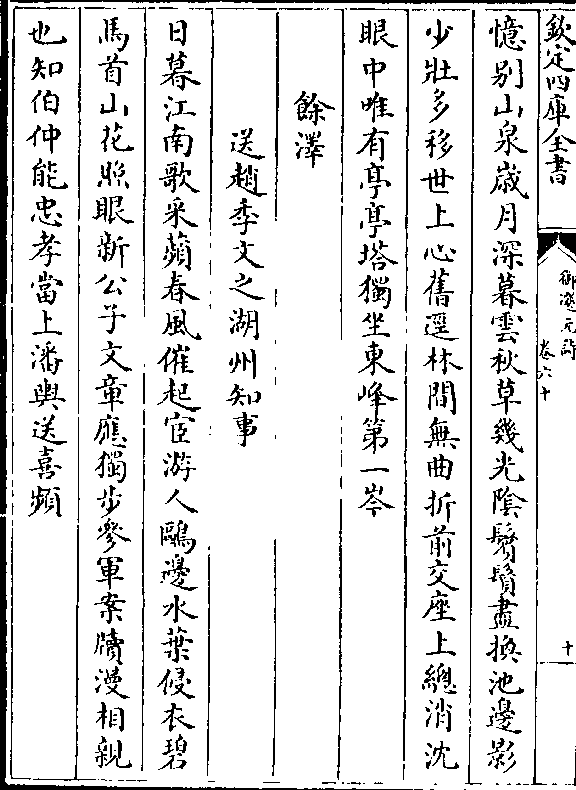 欽定四庫全書
御選元詩
卷六十
十
憶别山泉歳月深暮雲秋草幾光陰鬂鬢盡換池邊影
少壯多移世上心舊逕林間無曲折前交座上總消沈
眼中唯有亭亭塔獨坐東峰第一岑
餘澤
送趙季文之湖州知事
日暮江南歌采蘋春風催起宦游人鷗邊水葉侵衣碧
馬首山花照眼新公子文章應獨步參軍案牘漫相親
也知伯仲能忠孝當上潘輿送喜頻